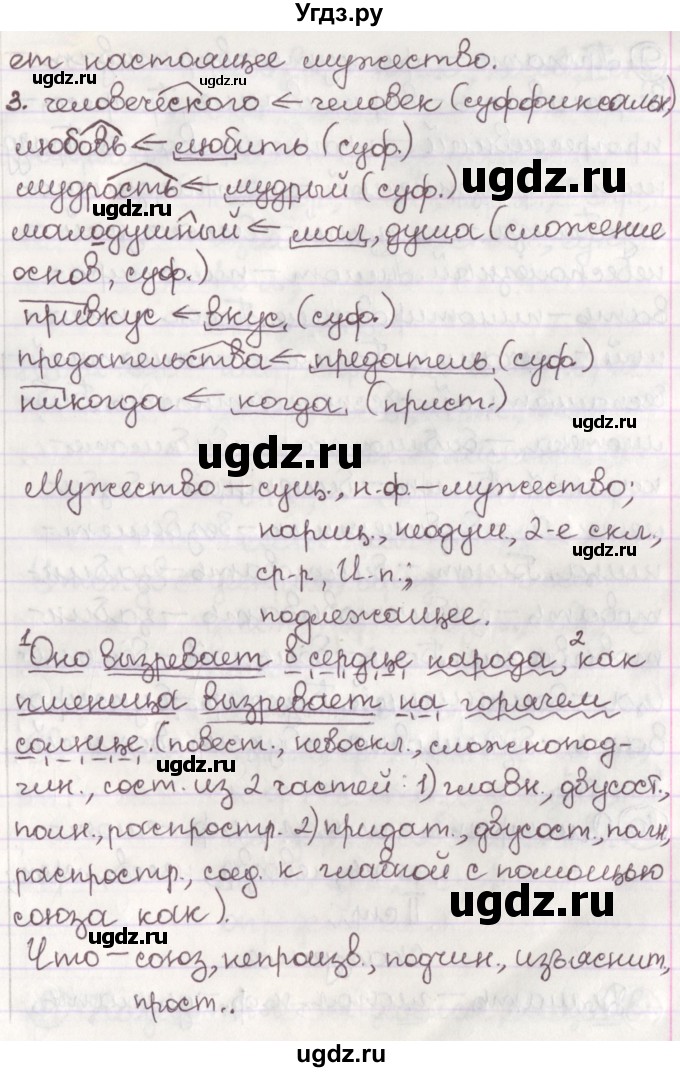 Угдз.ру
ет настоящее мужество.
3. человеческого ← человек (суффиксальн.)
любовь ← любить (суф.)
мудрость ← мудрый (суф.)
ugdz.ru
ugdz.ru
малодушный ← мал, душа (сложение
основ, суф.)
ugdz.ru
привкус ← вкус (суф.)
предательства ← предатель (суф.)
ugdz.ru
никогда ← когда (прист.)
ugdz.ru
Мужество – сущ., н.ф. – мужество;
нариц., неодуш., 2-е скл.,
ugdz.ru
ср.р, И.п.,
подлежащее.
1 Оно вызревает в сердце народа, 2 как
пшеница вызревает на горячем
солнце. (повест., невоскл., сложнопод-
ugdz.ru
чин., сост. из 2 частей: 1) главн., двусост.,
полн., распростр. 2) придат., двусост., полн,
распростр., соед. к главной с помощью
ugdz.ru
союза как).
ugdz.ru
Что – союз, непроизв., подчин., изъяснит,
прост..
ugdz.ru
ugdz.ru